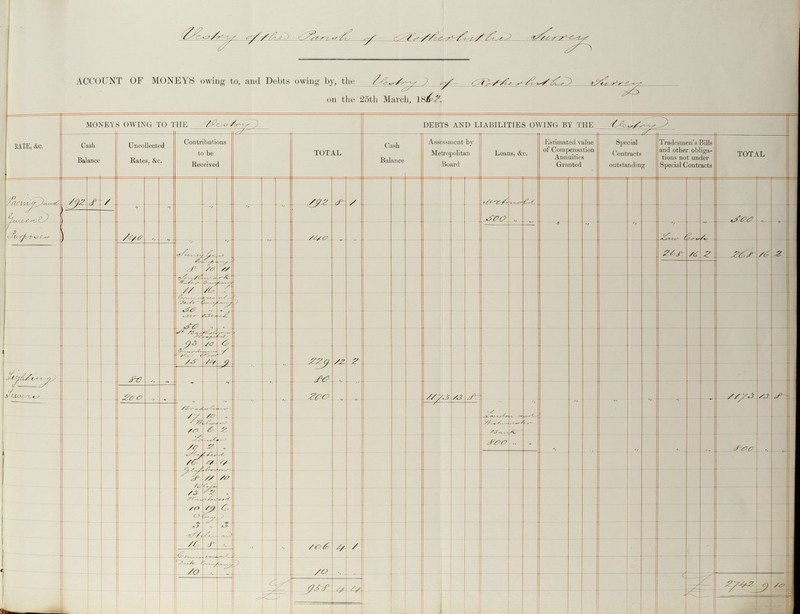 Vestry of the Parish of Rotherhithe Surrey
ACCOUNT OF MONEYS owing to, and Debts owing by, the Vestry of Rotherhithe Surrey
on the 25th March, 1862.
MONEYS OWING TO THE Vestry
DEBTS AND LIABILITIES OWING BY THE Vestry
RATE, &c.
Cash Balance
Uncollected Rates, &c.
Contributions to be Received
TOTAL
Cash Balance
Assessment by Metropolitan Board
Loans, &c.
Estimated value of Compensation Annuities Granted
Special Contracts outstanding
Tradesmen's Bills and other obligations not under Special Contracts
TOTAL
Paving and 192 8 1 " " " " 192 8 1
General 500 " " 500 " "
Purposes 140 " " 140 " " Law Costs
Surrey Gas 268 16 2 268 16 2
Company
8 10 11
Southwark
Water Company
11 16 "
Commercial
Dock Company
50 " "
50 " "
St Bartholomew's
Hospital
93 10 6
15 14 9 229 12 2
Lighting 80 " " 80 " "
Sewers 200 " " 200 " " 1173 13 8 1173 13 8
17 10 " London and
Westminster
10 6 2 Bank
London 800 " " 800 " "
10 2 "
16 4 4
8 11 10
13 2 "
10 19 6
3 " 3
16 8 " 106 4 1
Commercial
Dock Company
10 " " 10 " "
£ 958 4 4 £ 2742 9 10